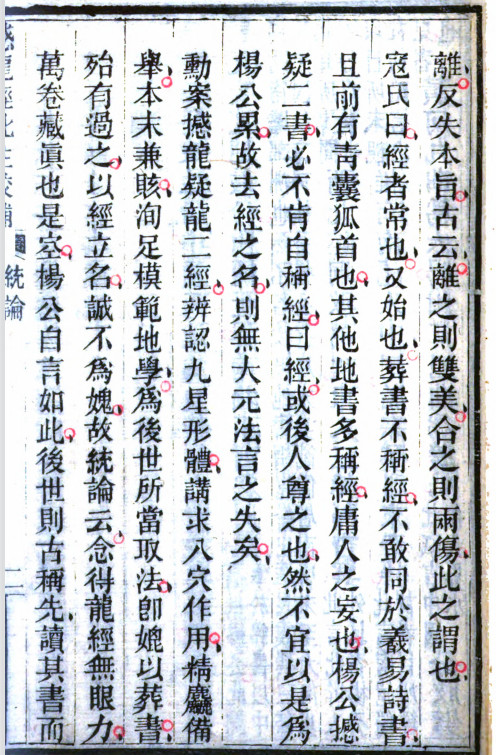 離反失本旨古云離之則雙美合之則兩傷此之謂也
寇氏曰經者常也又始也葬書不稱經不敢同於羲易詩書
且前有靑囊狐首也其他地書多稱經庸人之妄也楊公撼
疑二書必不肯自稱經曰經或後人尊之也然不宜以是爲
楊公累故去經之名則無大元法言之失矣
勳案撼龍疑龍二經辨認九星形體講求八穴作用精麤備
舉本末兼賅洵足模範地學爲後世所當取法卽媲以葬書
殆有過之以經立名誠不爲媿故統論云念得龍經無眼力
萬卷藏眞也是空楊公自言如此後世則古稱先讀其書而
龍經
校補
統論
二